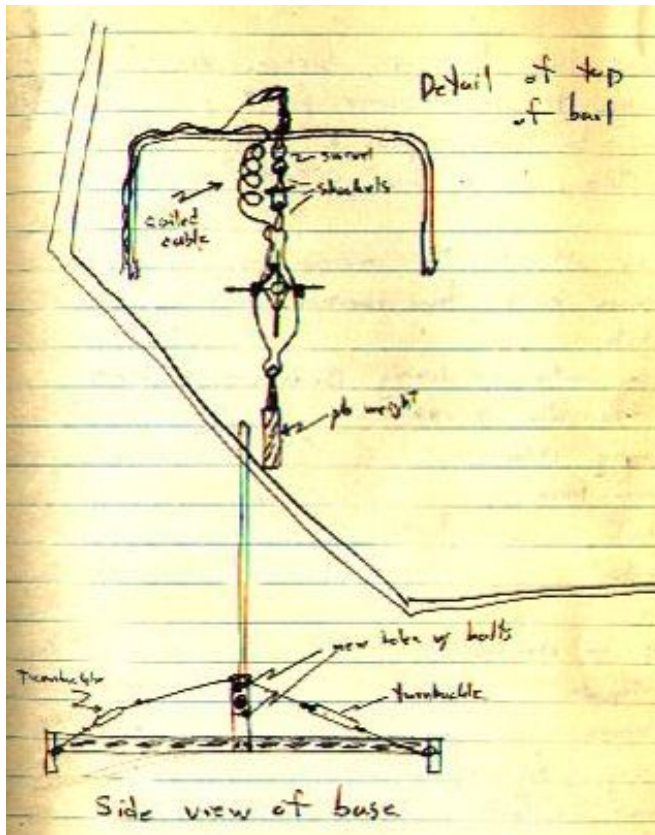 Detail of top
of bail
swivel
shackels
coiled
cable
pb weight
new holes w/ bolts
Turnbuckle
turnbuckle
Side view of base